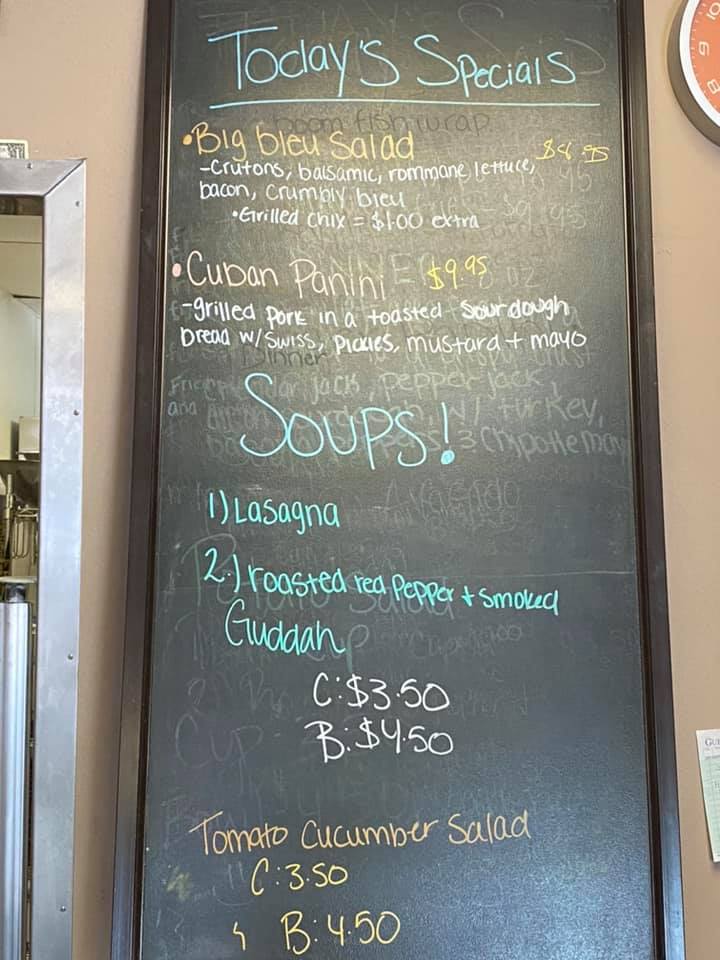 Today's Specials
•Big bleu Salad $8.95
-Crutons, balsamic, rommane lettuce,
bacon, crumbly bleu
•Grilled chix = $1.00 extra
•Cuban Panini $9.95
-grilled pork in a toasted sourdough
bread w/ Swiss, Pickles, mustard + mayo
Soups!
1) Lasagna
2.) roasted red Pepper + smoked
Guddah
C: $3.50
B: $4.50
Tomato Cucumber Salad
C: 3.50
B: 4.50